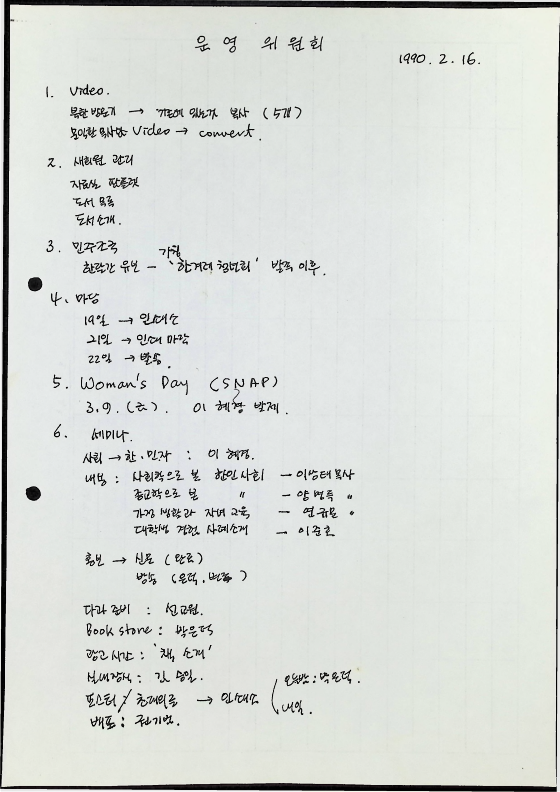 운영 위원회
1990. 2. 16.
1. Video.
북한 방문기 → 기존에 있는것 복사 (5개)
Video → convert.
2. 새회원 관리
자료실 팜플렛
도서 목록
도서소개.
3. 민주조국
가칭
한달간 유보 - '한겨레 청년회' 발족 이후.
4. 마당
19일 → 인쇄소
21일 → 인쇄 마감
22일 → 발송.
5. Woman's Day (SNAP)
3.9. (금). 이혜경 발제.
6. 세미나.
사회 → 한.민자 : 이혜경.
내용 : 사회학으로 본 한인사회 — 목사
종교학으로 본 〃 — 〃
가정 생활과 자녀교육 — 연규문 〃
대학생 경험 사례소개 → 이준호
홍보 → 신문 (완료)
방송
다과 준비 : 선교원.
Book store : 박은덕
광고시간 : '책, 소개'
실내장식 : 김승일.
포스터 / 초대의글 → 인쇄소
오늘밤 : 박은덕.
내일.
배포 : 권기범.